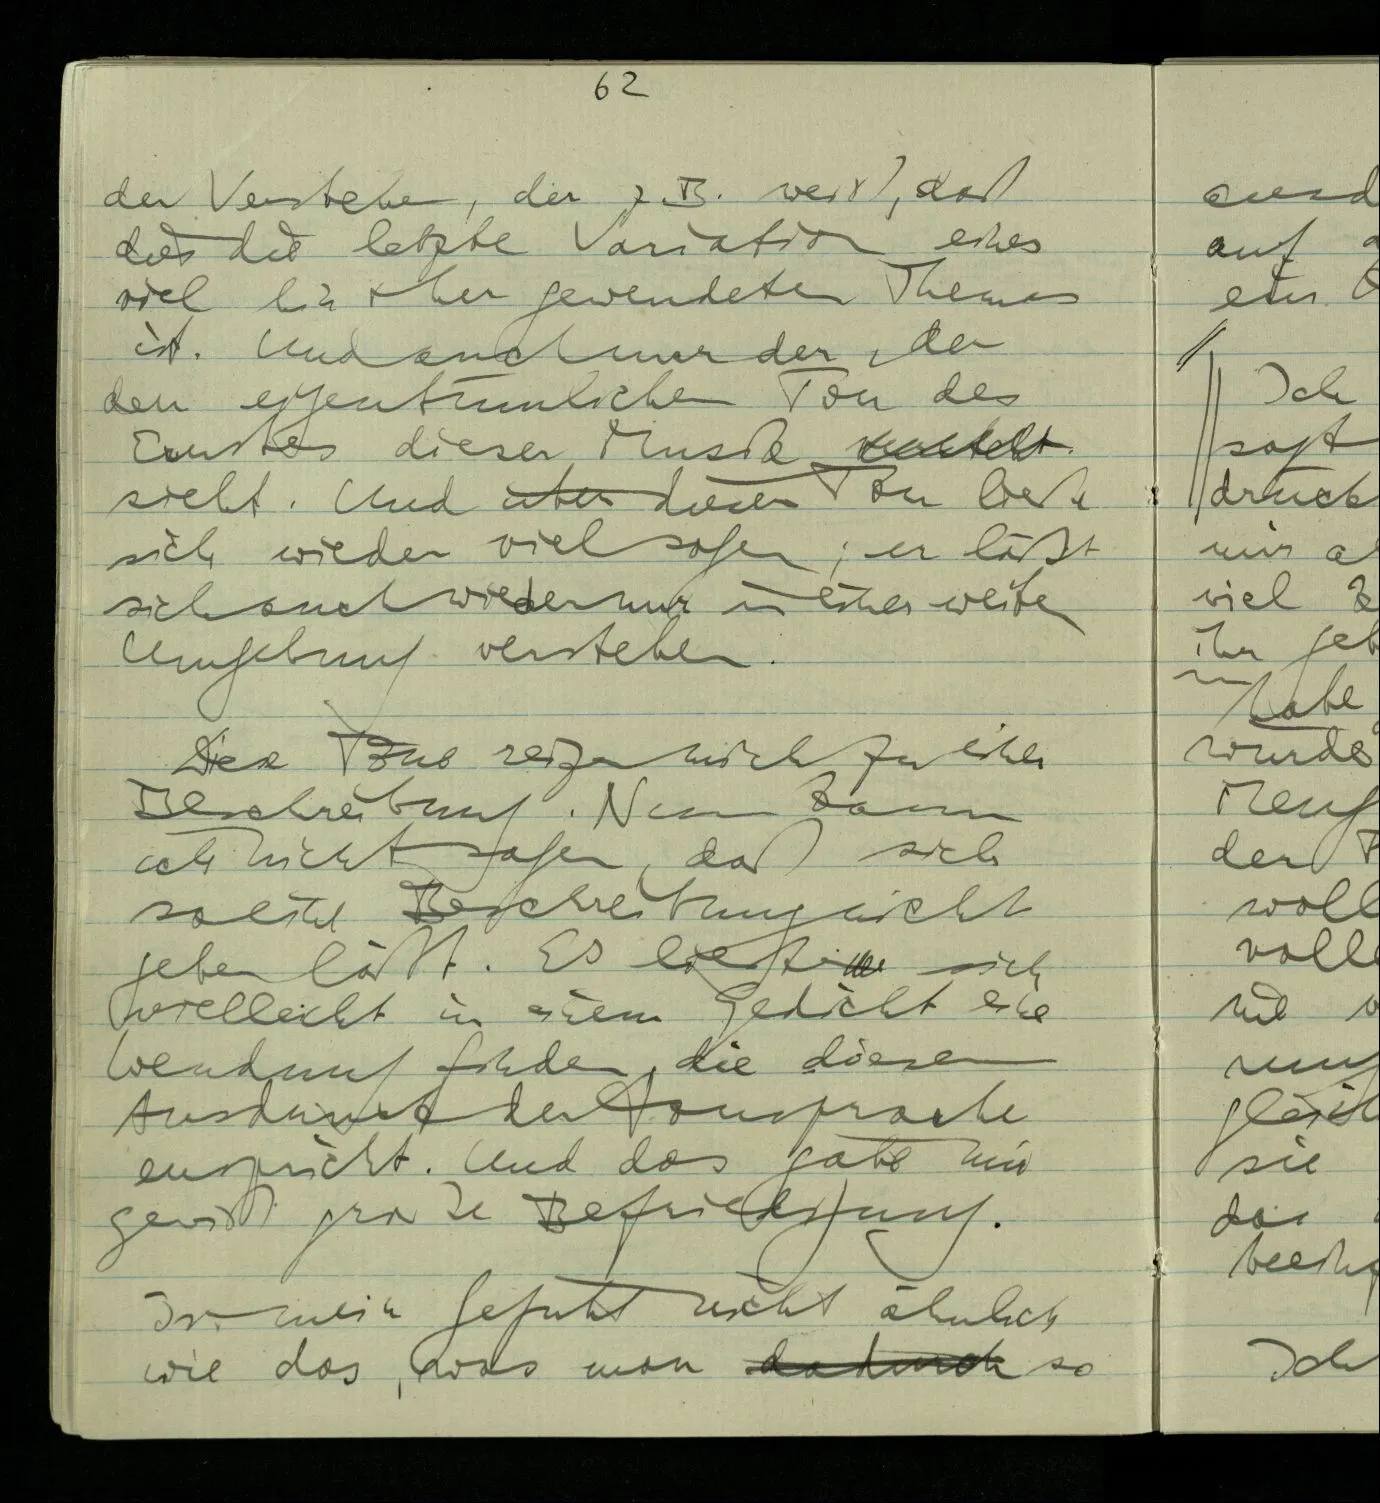 62
der Verstehe, der z.B. weiß, daß
dies die letzte Variation eines
viel hin & her gewendeten Themas
ist. Und auch nur der, der
den eigentümlichen Ton des
Ernstes dieser Musik
sieht. Und über diesen Ton ließe
sich wieder viel sagen; er läßt
sich auch wieder nur in einer weiten
Umgebung verstehen.
Diese reizen mich zu einer
Beschreibung. Nun kann
ich nicht sagen, daß sich
solche Beschreibung nicht
geben läßt. Es ließe sich
vielleicht in einem Gedicht eine
Wendung finden, die diesem
Ausdruck der Tonsprache
enspricht. Und das gäbe mir
gewiß große Befriedigung.
Ist mein Gefühl nicht ähnlich
wie das, was man dadurch so
auf
ein
Ich
sagt
drück
mir
viel
ihr
habe
wurde
der
voll
mit
sie
das
Ich